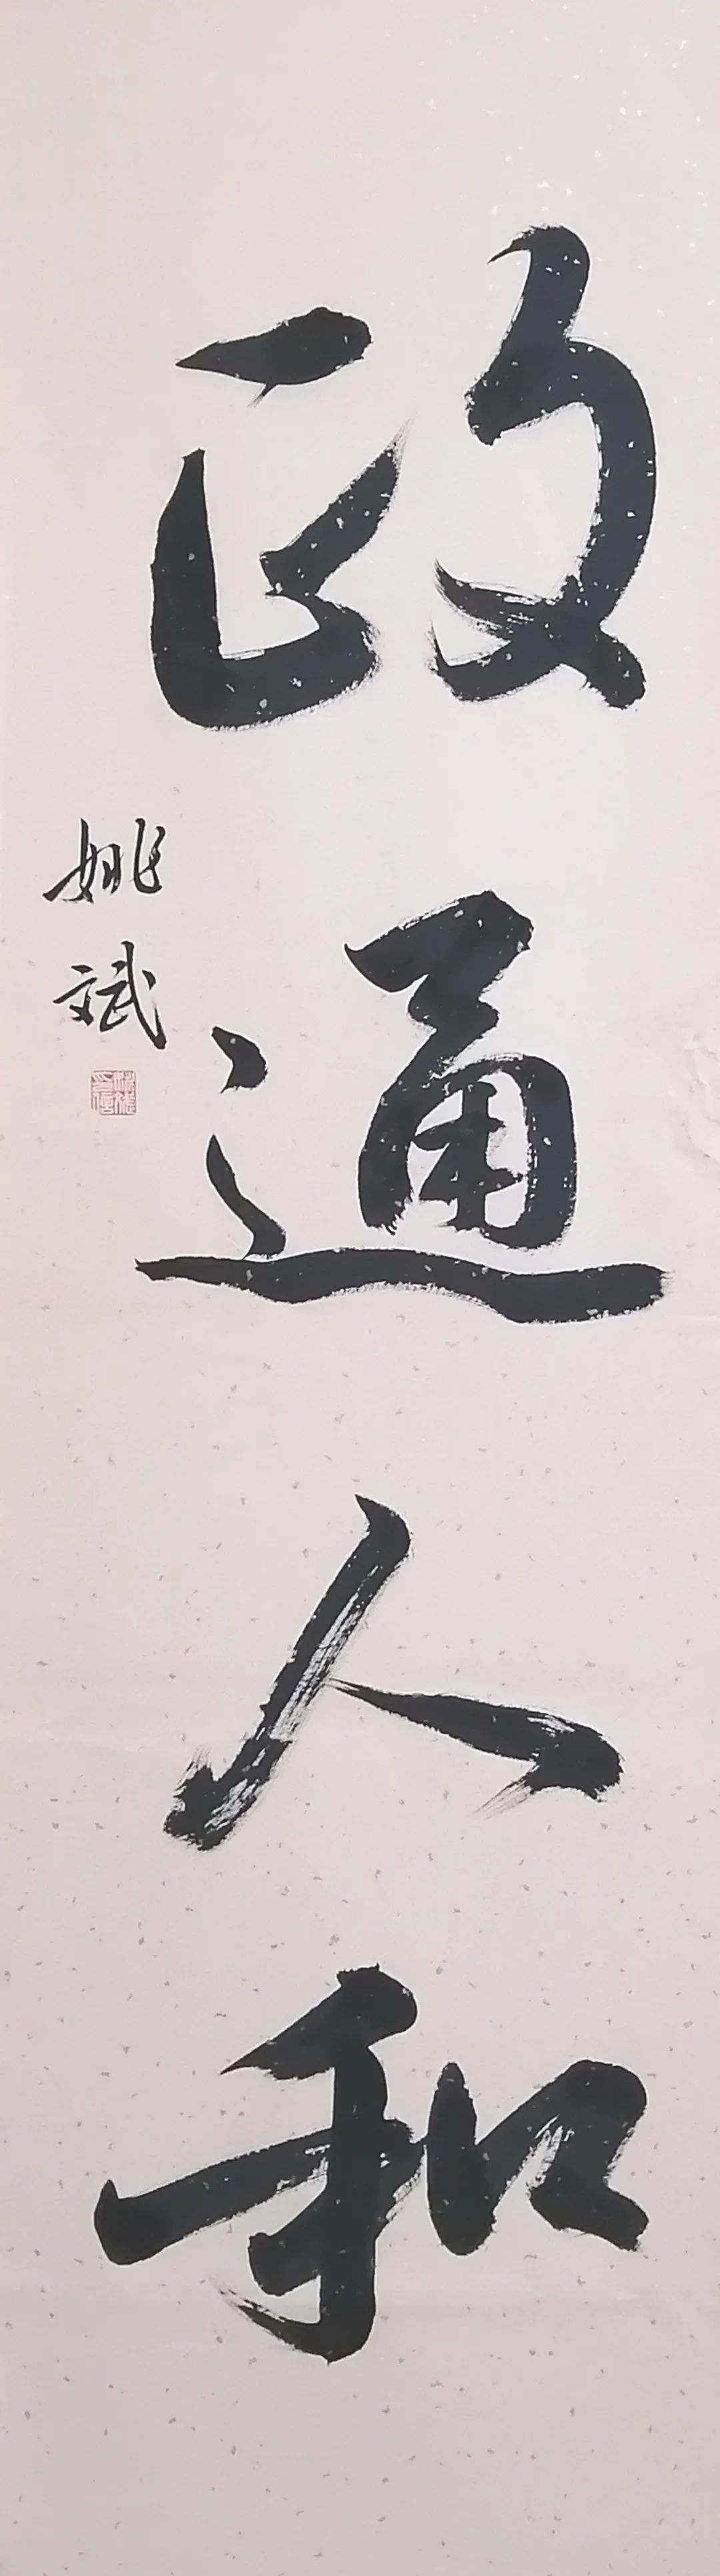 政通人和
姚斌